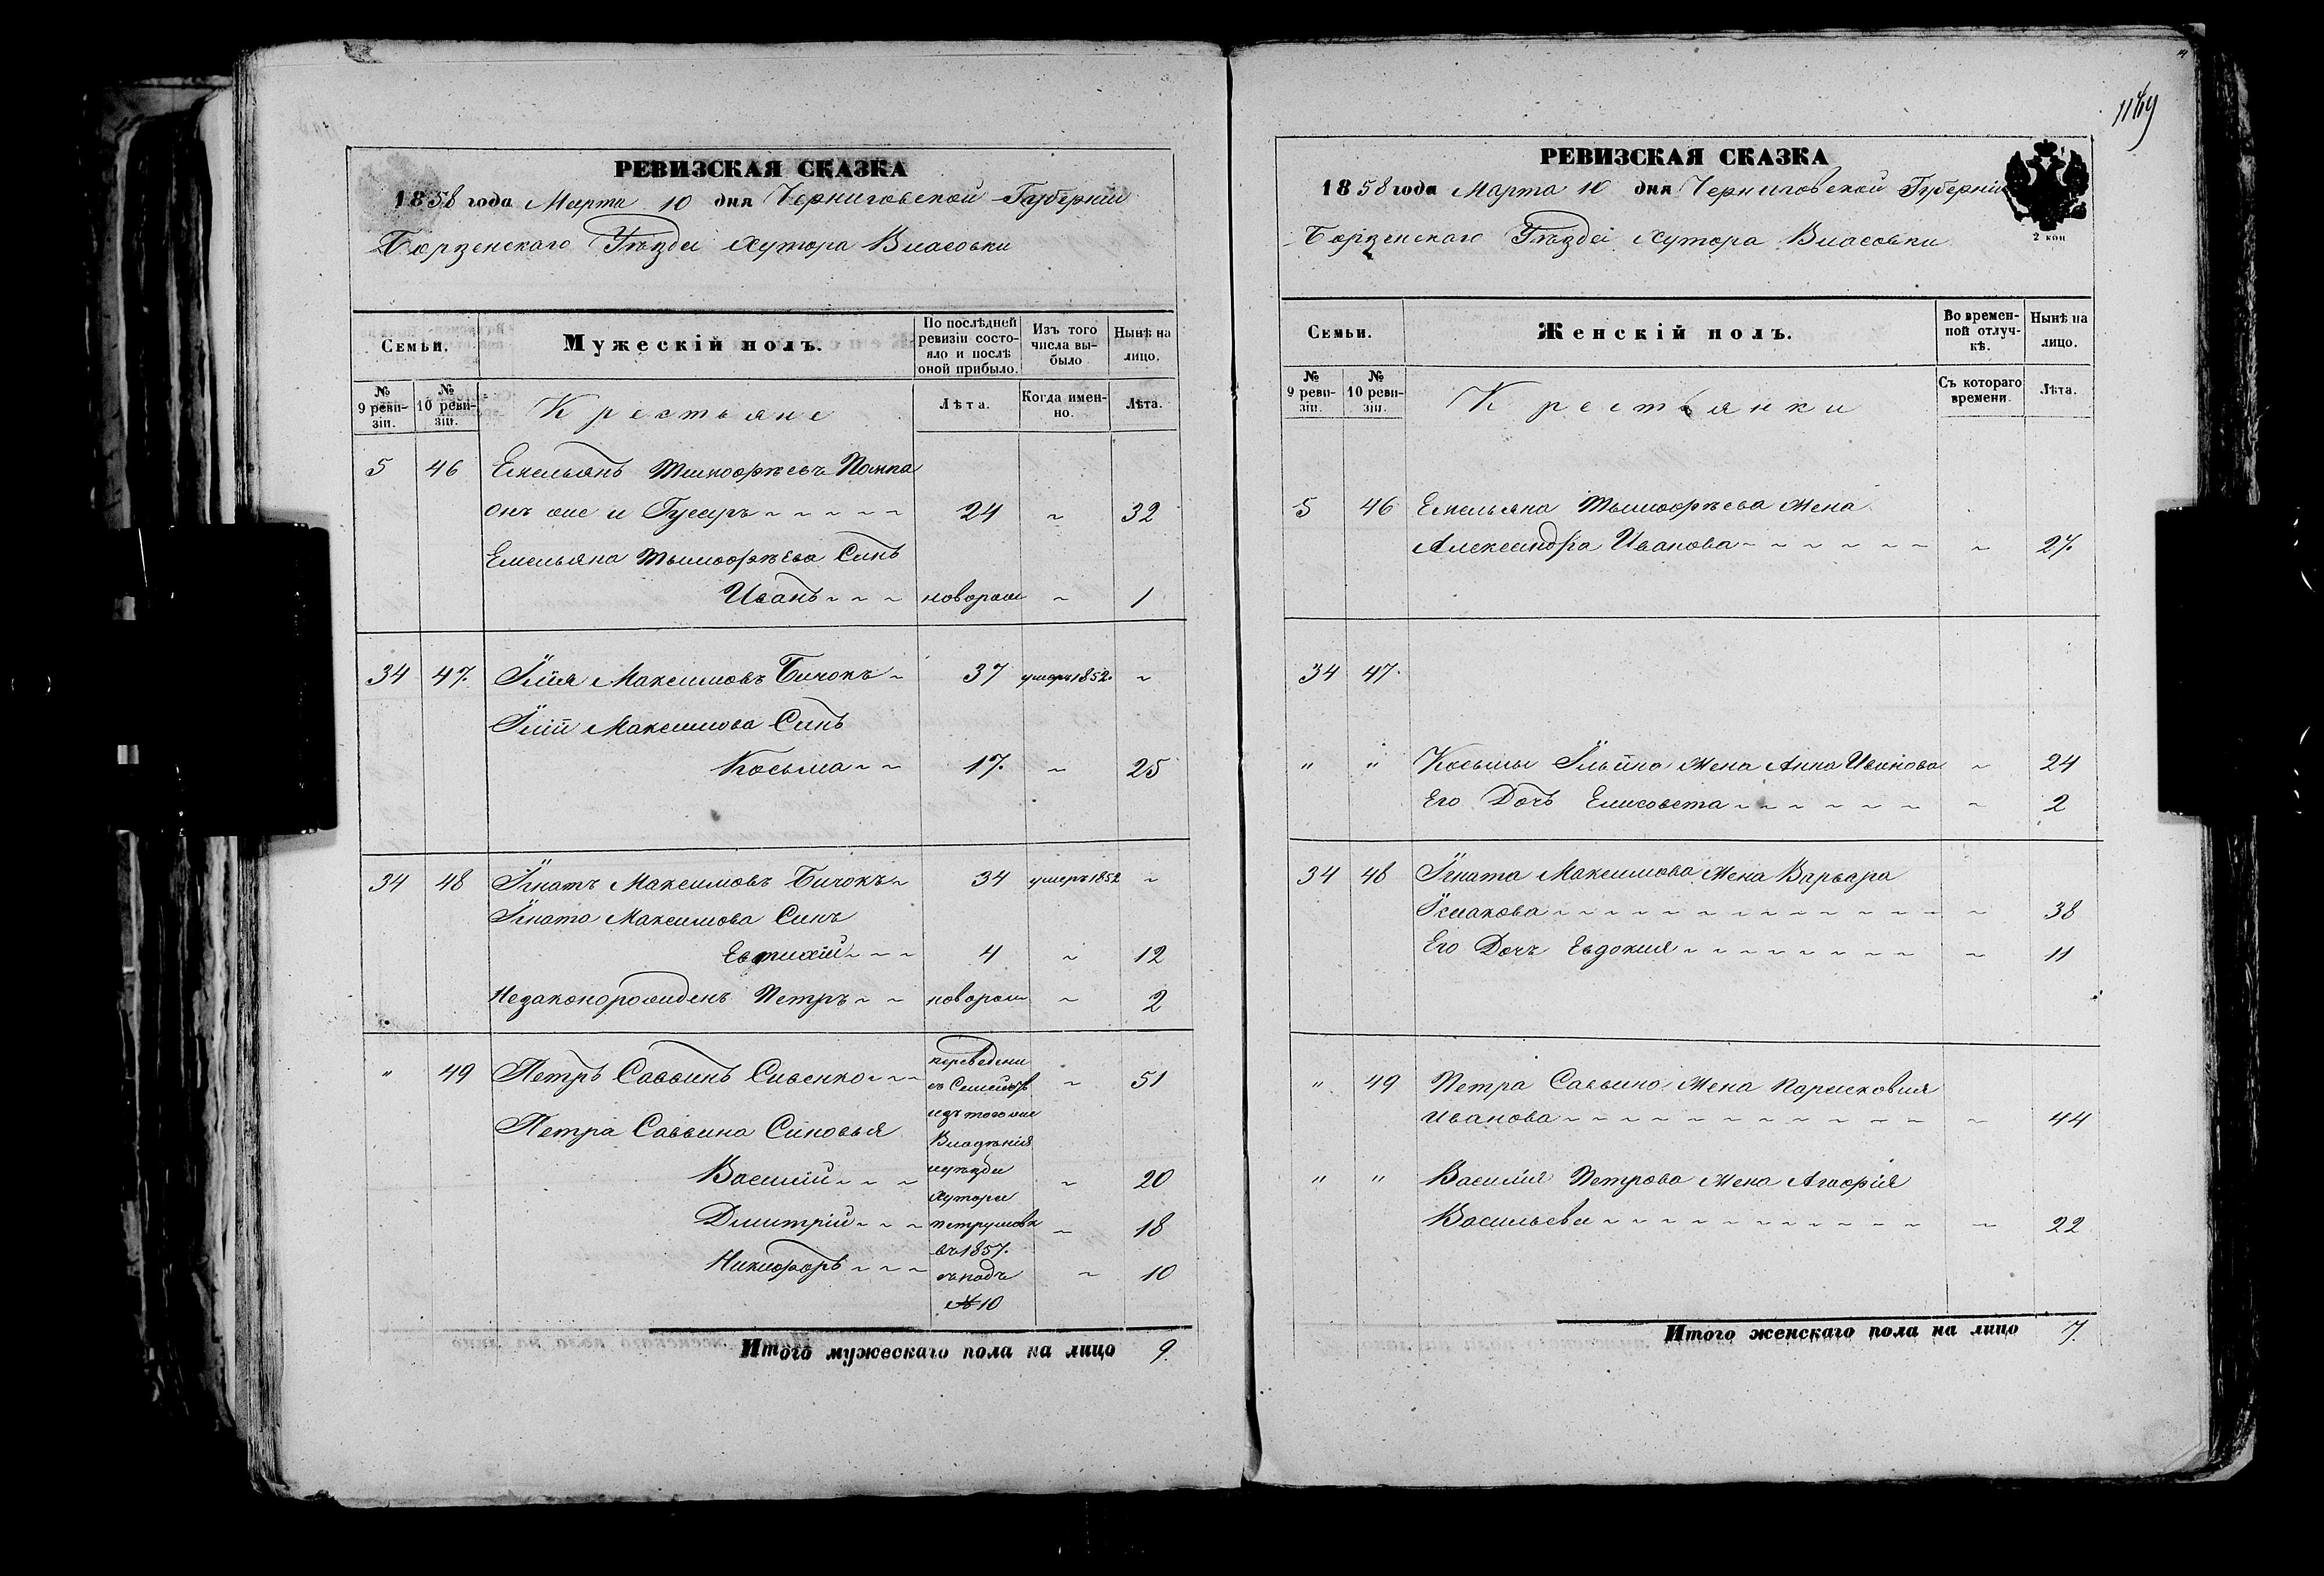 РЕВИЗСКАЯ СКАЗКА
1858 года Марта 10 дня Черниговской Губерніи
Борзенскаго Уѣзда Хутора Власовки
Семьи.
Мужескій полъ.
По послѣдней ревизіи состояло и послѣ оной прибыло.
Изъ того числа выбыло
Нынѣ на лицо.
№ 9 ревизіи.
№ 10 ревизіи.
Крестьяне
Лѣта.
Когда именно.
Лѣта.
5 46 Емельянъ Тимофѣевъ Помпа
онъ же и Гусаръ 24 ~ 32
Емельяна Тимофѣева Синъ
Иванъ новорож ~ 1
34 47. Илія Максимовъ Бичокъ 37 умеръ 1852. ~
Иліи Максимова Синъ
Косьма 17. ~ 25
34 48 Игнатъ Максимовъ Бичокъ 34 умеръ 1852 ~
Игната Максимова Синъ
Евтихій 4 ~ 12
Незаконорожденъ Петръ новорож ~ 2
" 49 Петръ Саввинъ Сивенко ~ 51
Петра Саввина Синовья
Василій ~ 20
Дмитрій ~ 18
Никифоръ ~ 10
переведени
съ Семейств
изъ того же
Владѣнія
и уѣзда
Хутора
въ 1857.
съ подъ
№ 10
Итого мужескаго пола на лицо 9.
1149
РЕВИЗСКАЯ СКАЗКА
1858 года Марта 10 дня Черниговской Губерніи
Борзенскаго Уѣзда Хутора Власовки
2 коп
Семьи.
Женскій полъ.
Во временной отлучкѣ.
Нынѣ на лицо.
№ 9 ревизіи.
№ 10 ревизіи.
Крестьянки
Съ котораго времени.
Лѣта.
5 46 Емельяна Тимофѣева Жена
Александра Иванова ~ 27.
34 47.
" " Косьмы Ильина Жена Анна Иванова ~ 24
Его Дочь Елисавета ~ 2
34 48 Игната Максимова Жена Варвара
Исакова ~ 38
Его Дочь Евдокия ~ 11
" 49 Петра Саввина Жена Парасковия
Иванова ~ 44
" " Василія Петрова Жена Агафія
Васильева ~ 22
Итого женскаго пола на лицо 7.